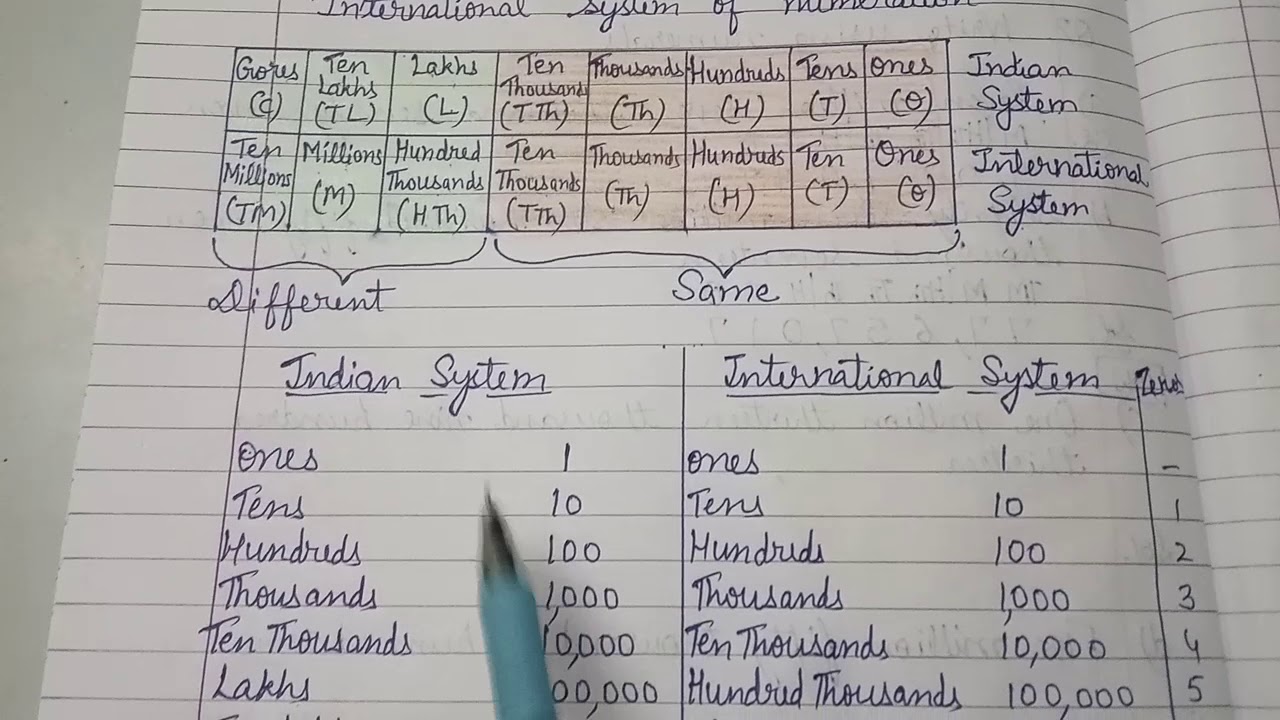 International System of Numeration
Crores Ten Lakhs Lakhs Ten Thousand Thousands Hundreds Tens Ones Indian System
(C) (TL) (L) (T Th) (Th) (H) (T) (O)
Ten Millions Millions Hundred Thousands Ten Thousands Thousands Hundreds Ten Ones International System
(TM) (M) (H Th) (TTh) (Th) (H) (T) (O)
Different Same
Indian System International System Zeros
Ones 1 Ones 1 –
Tens 10 Tens 10 1
Hundreds 100 Hundreds 100 2
Thousands 1,000 Thousands 1,000 3
Ten Thousands 10,000 Ten Thousands 10,000 4
Lakhs 00,000 Hundred Thousands 100,000 5